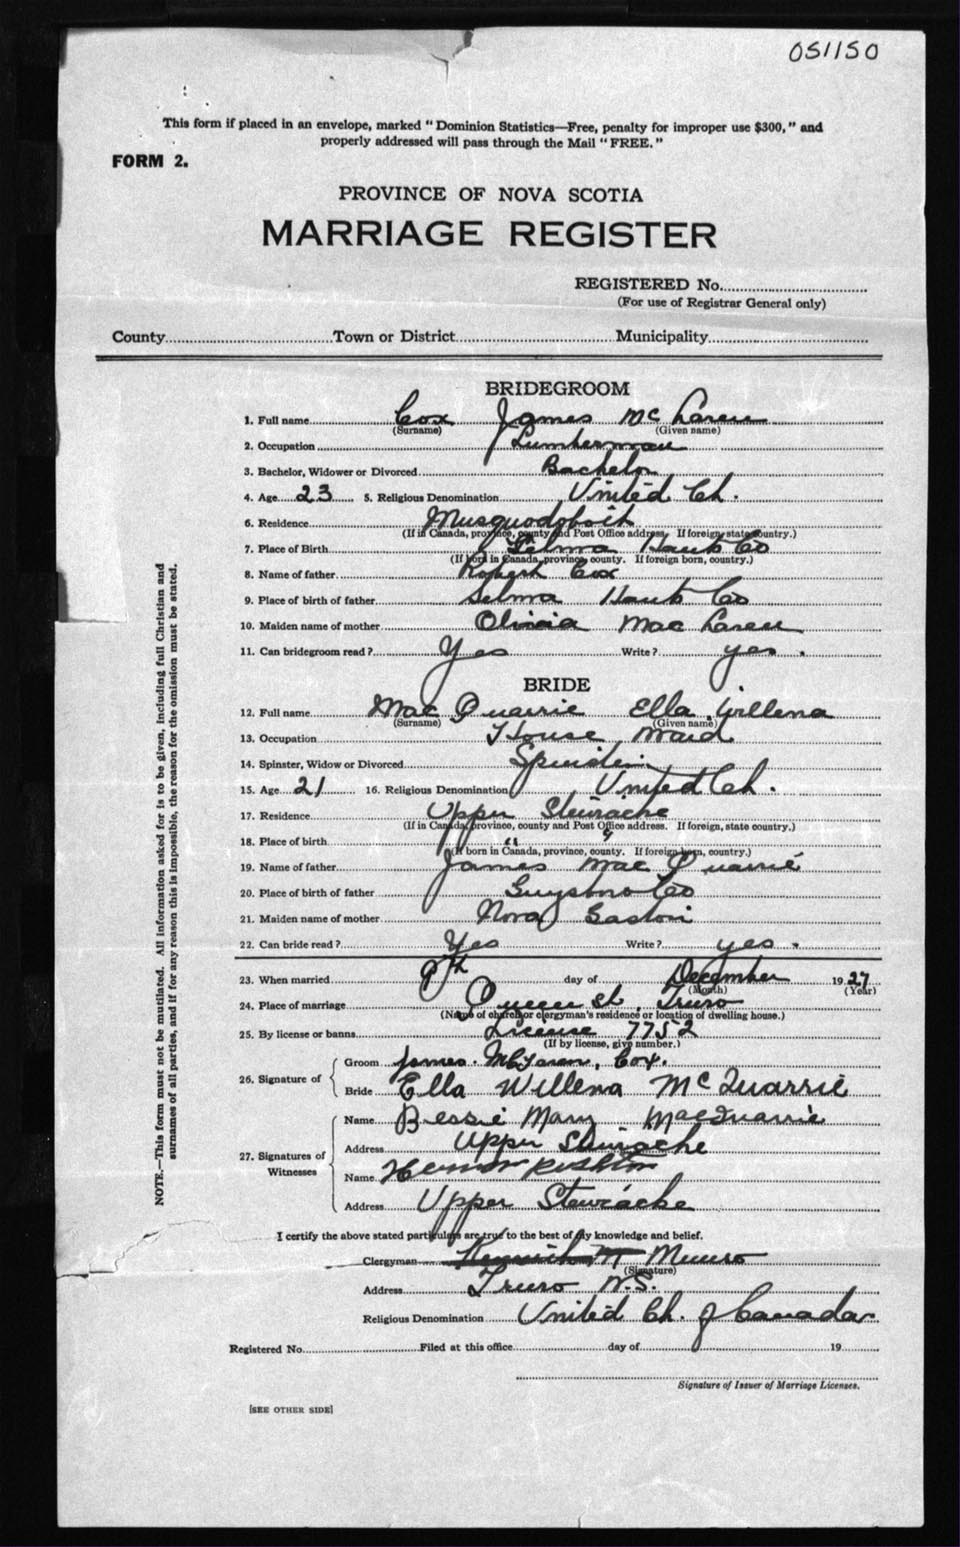 051150
This form if placed in an envelope, marked " Dominion Statistics—Free, penalty for improper use $300, " and
properly addressed will pass through the Mail " FREE. "
FORM 2.
PROVINCE OF NOVA SCOTIA
MARRIAGE REGISTER
REGISTERED No.
(For use of Registrar General only)
County Town or District Municipality
BRIDEGROOM
1. Full name Cox James McLaren
(Surname) (Given name)
2. Occupation Lumberman
3. Bachelor, Widower or Divorced Bachelor
4. Age 23 5. Religious Denomination United Ch.
6. Residence Musquodoboit
(If in Canada, province, county and Post Office address. If foreign, state country.)
7. Place of Birth Selma Hants Co
(If born in Canada, province, county. If foreign born, country.)
8. Name of father Robert Cox
9. Place of birth of father Selma Hants Co
10. Maiden name of mother Olivia Mac Laren
11. Can bridegroom read? Yes Write? yes.
BRIDE
12. Full name Mac Quarrie Ella Willena
(Surname) (Given name)
13. Occupation House Maid
14. Spinster, Widow or Divorced Spinster
15. Age 21 16. Religious Denomination United Ch.
17. Residence Upper Stewiacke
(If in Canada, province, county and Post Office address. If foreign, state country.)
18. Place of birth " "
(If born in Canada, province, county. If foreign born, country.)
19. Name of father James Mac Quarrie
20. Place of birth of father Guysboro Co
21. Maiden name of mother Nora
22. Can bride read? Yes Write? yes.
23. When married 9th day of December 1927
(Month) (Year)
24. Place of marriage Queen St. Truro
(Name of church or clergyman's residence or location of dwelling house.)
25. By license or banns License 7752
(If by license, give number.)
26. Signature of
Groom James. McLaren. Cox.
Bride Ella Willena McQuarrie
27. Signatures of Witnesses
Name Bessie Mary MacQuarrie
Address Upper Stewiacke
Name Rushton
Address Upper Stewiacke
I certify the above stated particulars are true to the best of my knowledge and belief.
Clergyman Munro
(Signature)
Address Truro N.S.
Religious Denomination United Ch. of Canada
Registered No. Filed at this office day of 19
Signature of Issuer of Marriage Licenses.
[SEE OTHER SIDE]
NOTE.—This form must not be mutilated. All information asked for is to be given, including full Christian and
surnames of all parties, and if for any reason this is impossible, the reason for the omission must be stated.